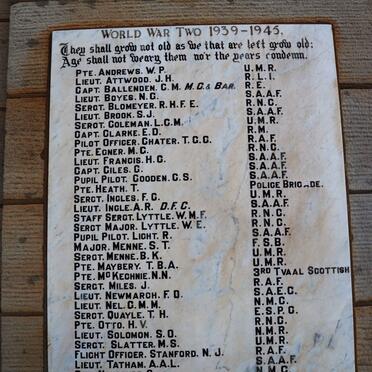 WORLD WAR TWO 1939-1945.
They shall grow not old as we that are left grow old:
Age shall not weary them no'r the years condemn.
PTE. ANDREWS. W. P. U.M.R.
LIEUT. ATTWOOD. J. H. R.L.I.
CAPT. BALLENDEN. C. M. M.C. & BAR. R.E.
LIEUT. BOYES. N. G. S.A.A.F.
SERGT. BLOMEYER. R. H. F. E. R.N.C.
LIEUT. BROOK. S. J. S.A.A.F.
SERGT. COLEMAN. L. C. M. U.M.R.
CAPT. CLARKE. E. D. R.M.
PILOT OFFICER. CHATER. T. G. C. R.A.F.
PTE. EGNER. M. C. R.N.C.
LIEUT. FRANCIS. H. G. S.A.A.F.
CAPT. GILES. G. S.A.A.F.
PUPIL PILOT. GOODEN. C. S. S.A.A.F.
PTE. HEATH. T. POLICE BRIGADE.
SERGT. INGLES. F. G. U.M.R.
LIEUT. INGLE. A. R. D.F.C. S.A.A.F.
STAFF SERGT. LYTTLE. W. M. F. R.N.C.
SERGT MAJOR. LYTTLE. W. E. R.N.C.
PUPIL PILOT. LIGHT. R. S.A.A.F.
MAJOR. MENNE. S. T. F.S.B.
SERGT. MENNE. B. K. U.M.R.
PTE. MAYBERY. T. B. A. U.M.R.
PTE. McKECHNIE. N. N. 3RD TVAAL SCOTTISH
SERGT. MILES. J. R.A.F.
LIEUT. NEWMARCH. F. O. S.A.E.C.
LIEUT. NEL. C. M. M. N.M.C.
SERGT. QUAYLE. T. H. E.S.P.C.
PTE. OTTO. H. V. R.N.C.
LIEUT. SOLOMON. S. O. N.M.R.
SERGT. SLATTER. M. S. U.M.R.
FLIGHT OFFICER. STANFORD. N. J. R.A.F.
LIEUT. TATHAM. A. A. L. S.A.A.F.
N.M.C.